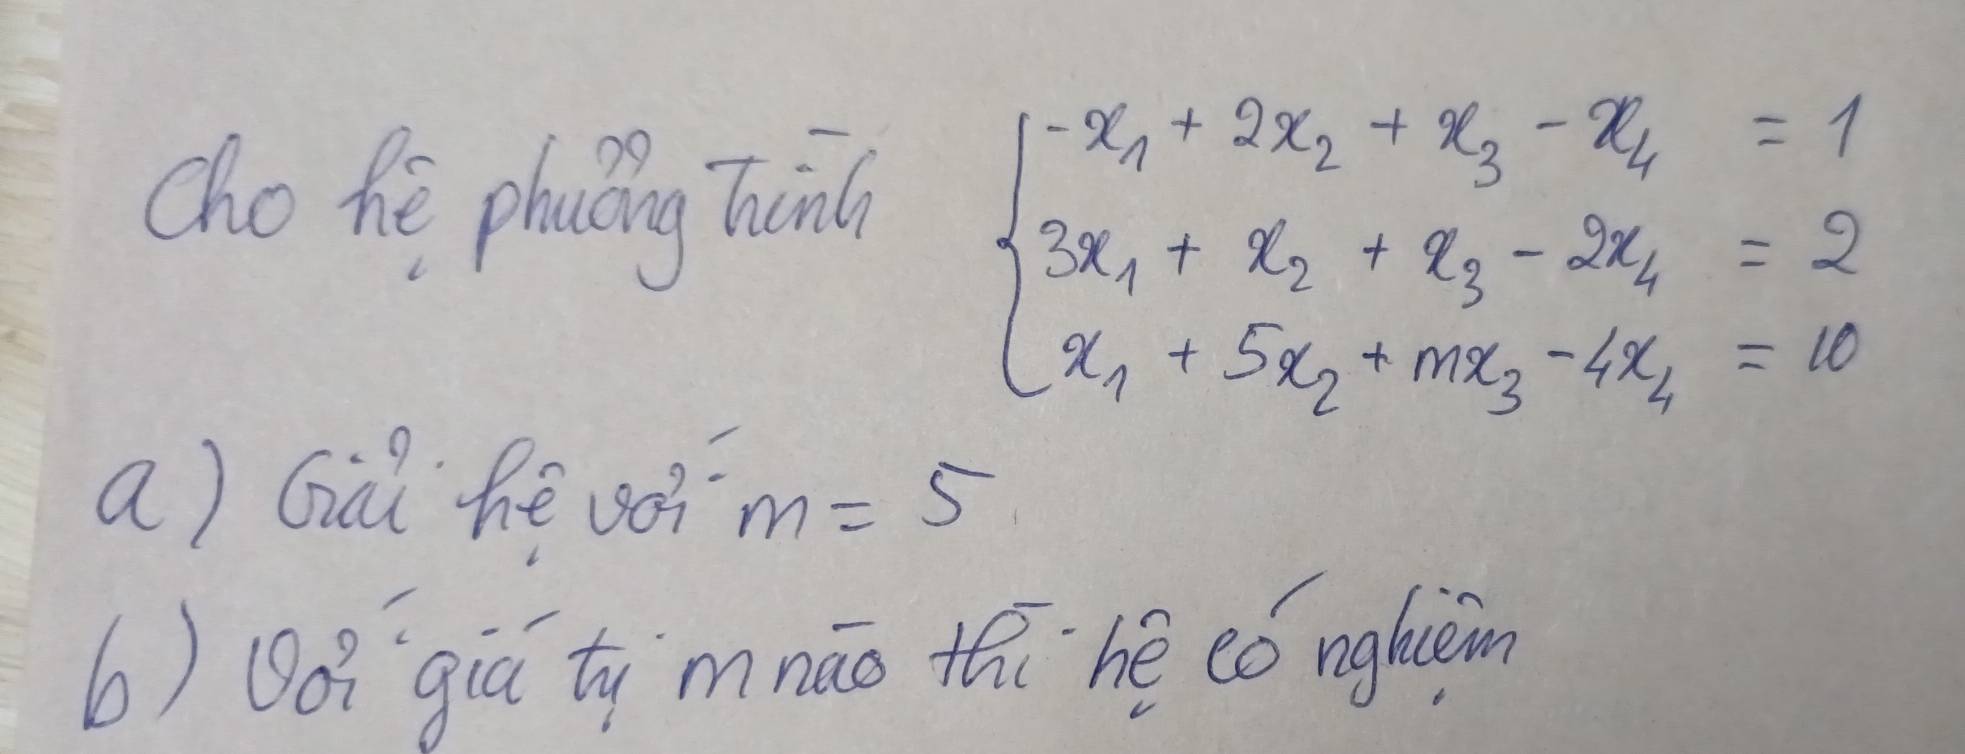 Cho hệ phương trình { -x₁ + 2x₂ + x₃ - x₄ = 1
3x₁ + x₂ + x₃ - 2x₄ = 2
x₁ + 5x₂ + mx₃ - 4x₄ = 10
a) Giải hệ với m = 5
b) Với giá tị m nào thì hệ có nghiệm